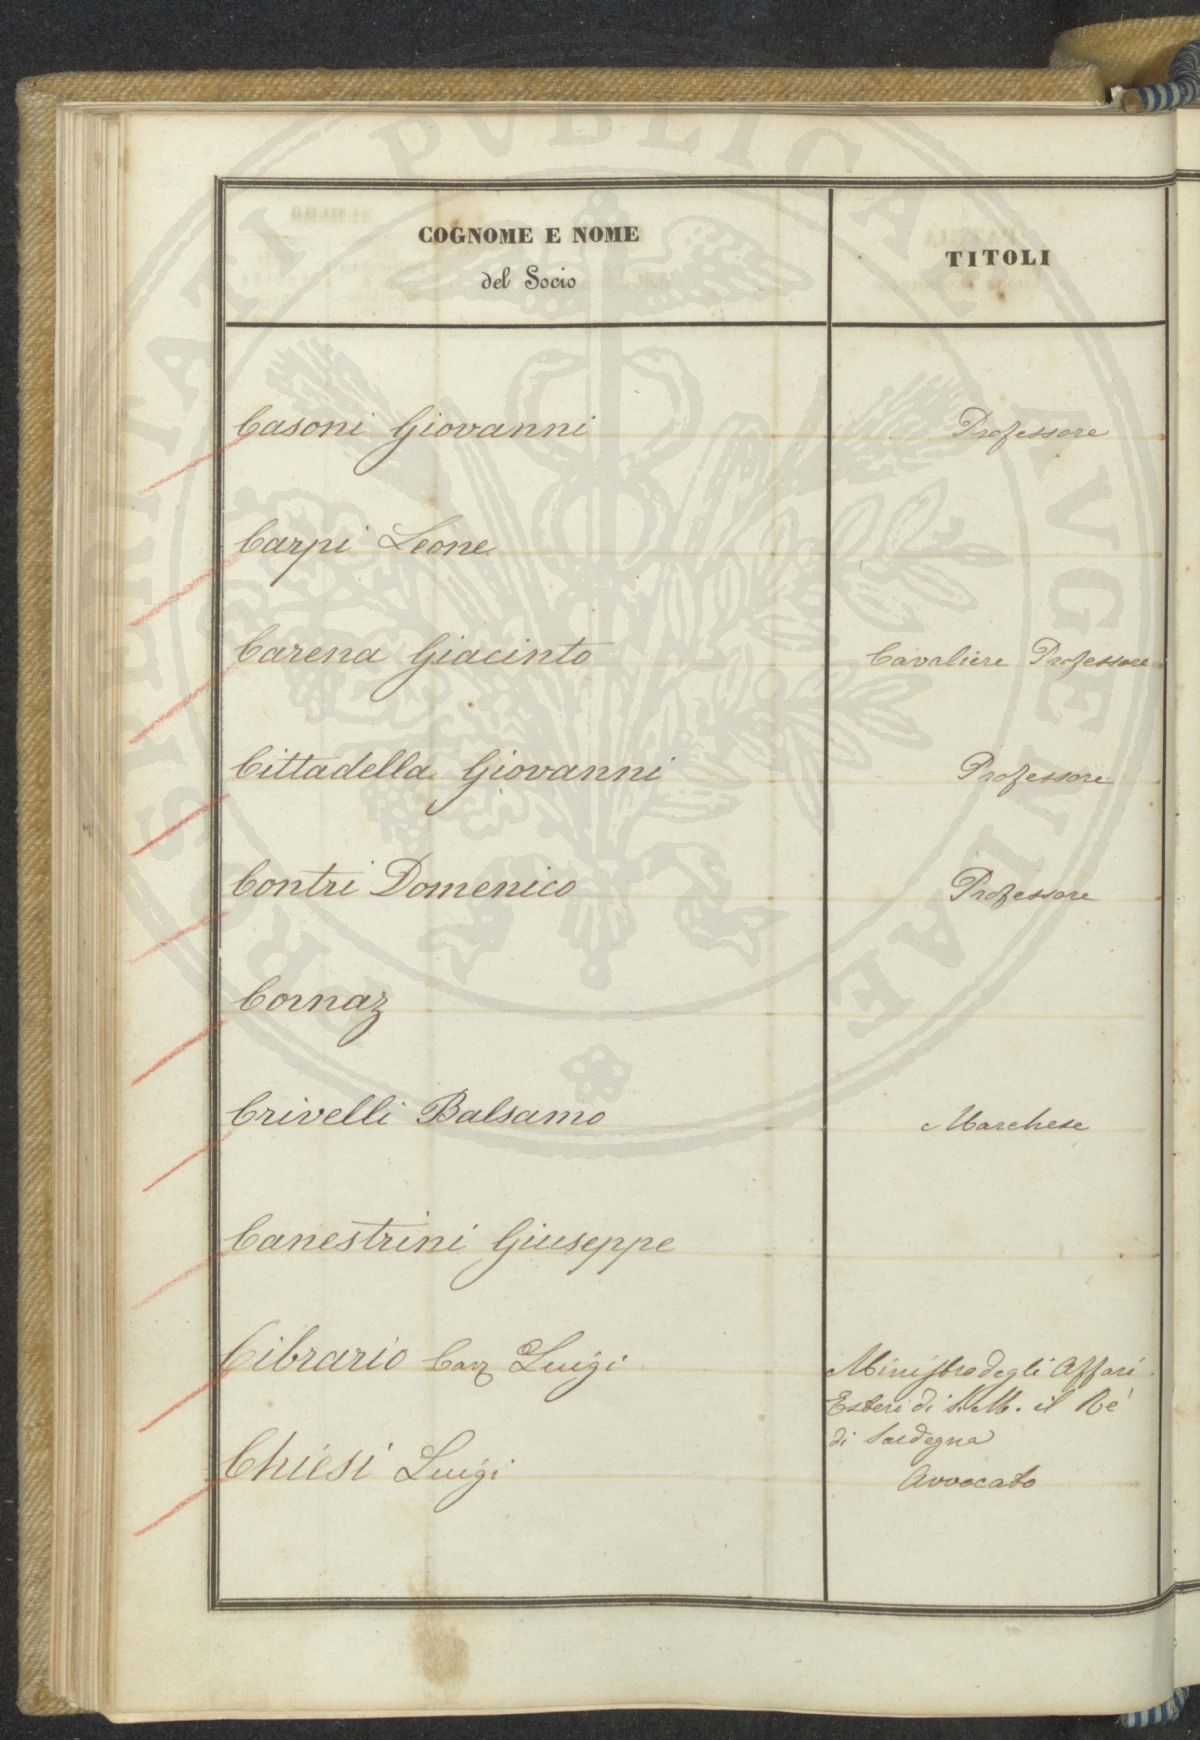 COGNOME E NOME
del Socio
TITOLI
Casoni Giovanni Professore
Carpi Leone
Carena Giacinto Cavaliere Professore
Cittadella Giovanni Professore
Contri Domenico Professore
Cornaz
Crivelli Balsamo Marchese
Canestrini Giuseppe
Cibrario Cav Luigi Ministro degli Affari
Esteri di S. M. il Re
di Sardegna
Chiesi Luigi Avvocato
PROSPERITATI PVBLICAE AVGENDAE